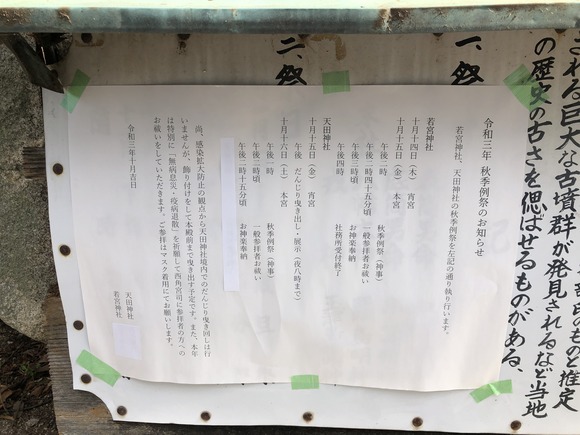 される巨大な古墳群が発見されるなど当地
の歴史の古さを偲ばせるものがある、
一、祭
二、祭
令和三年 秋季例祭のお知らせ
若宮神社、天田神社の秋季例祭を左記の通り執り行います。
若宮神社
十月十四日（木） 宵宮
十月十五日（金） 本宮
午後一時 秋季例祭（神事）
午後一時四十五分頃 一般参拝者お祓い
午後三時頃 お神楽奉納
午後四時 社務所受付終了
天田神社
十月十五日（金） 宵宮
午後 だんじり曳き出し・展示（夜八時まで）
十月十六日（土） 本宮
午後一時 秋季例祭（神事）
午後二時頃 一般参拝者お祓い
午後二時十五分頃 お神楽奉納
尚、感染拡大防止の観点から天田神社境内でのだんじり曳き回しは行
いませんが、飾り付けをして本殿前まで曳き出す予定です。また、本年
は特別に「無病息災・疫病退散」を祈願して西角宮司に参拝者の方への
お祓いをしていただきます。ご参拝はマスク着用にてお願いします。
令和三年十月吉日
天田神社
若宮神社